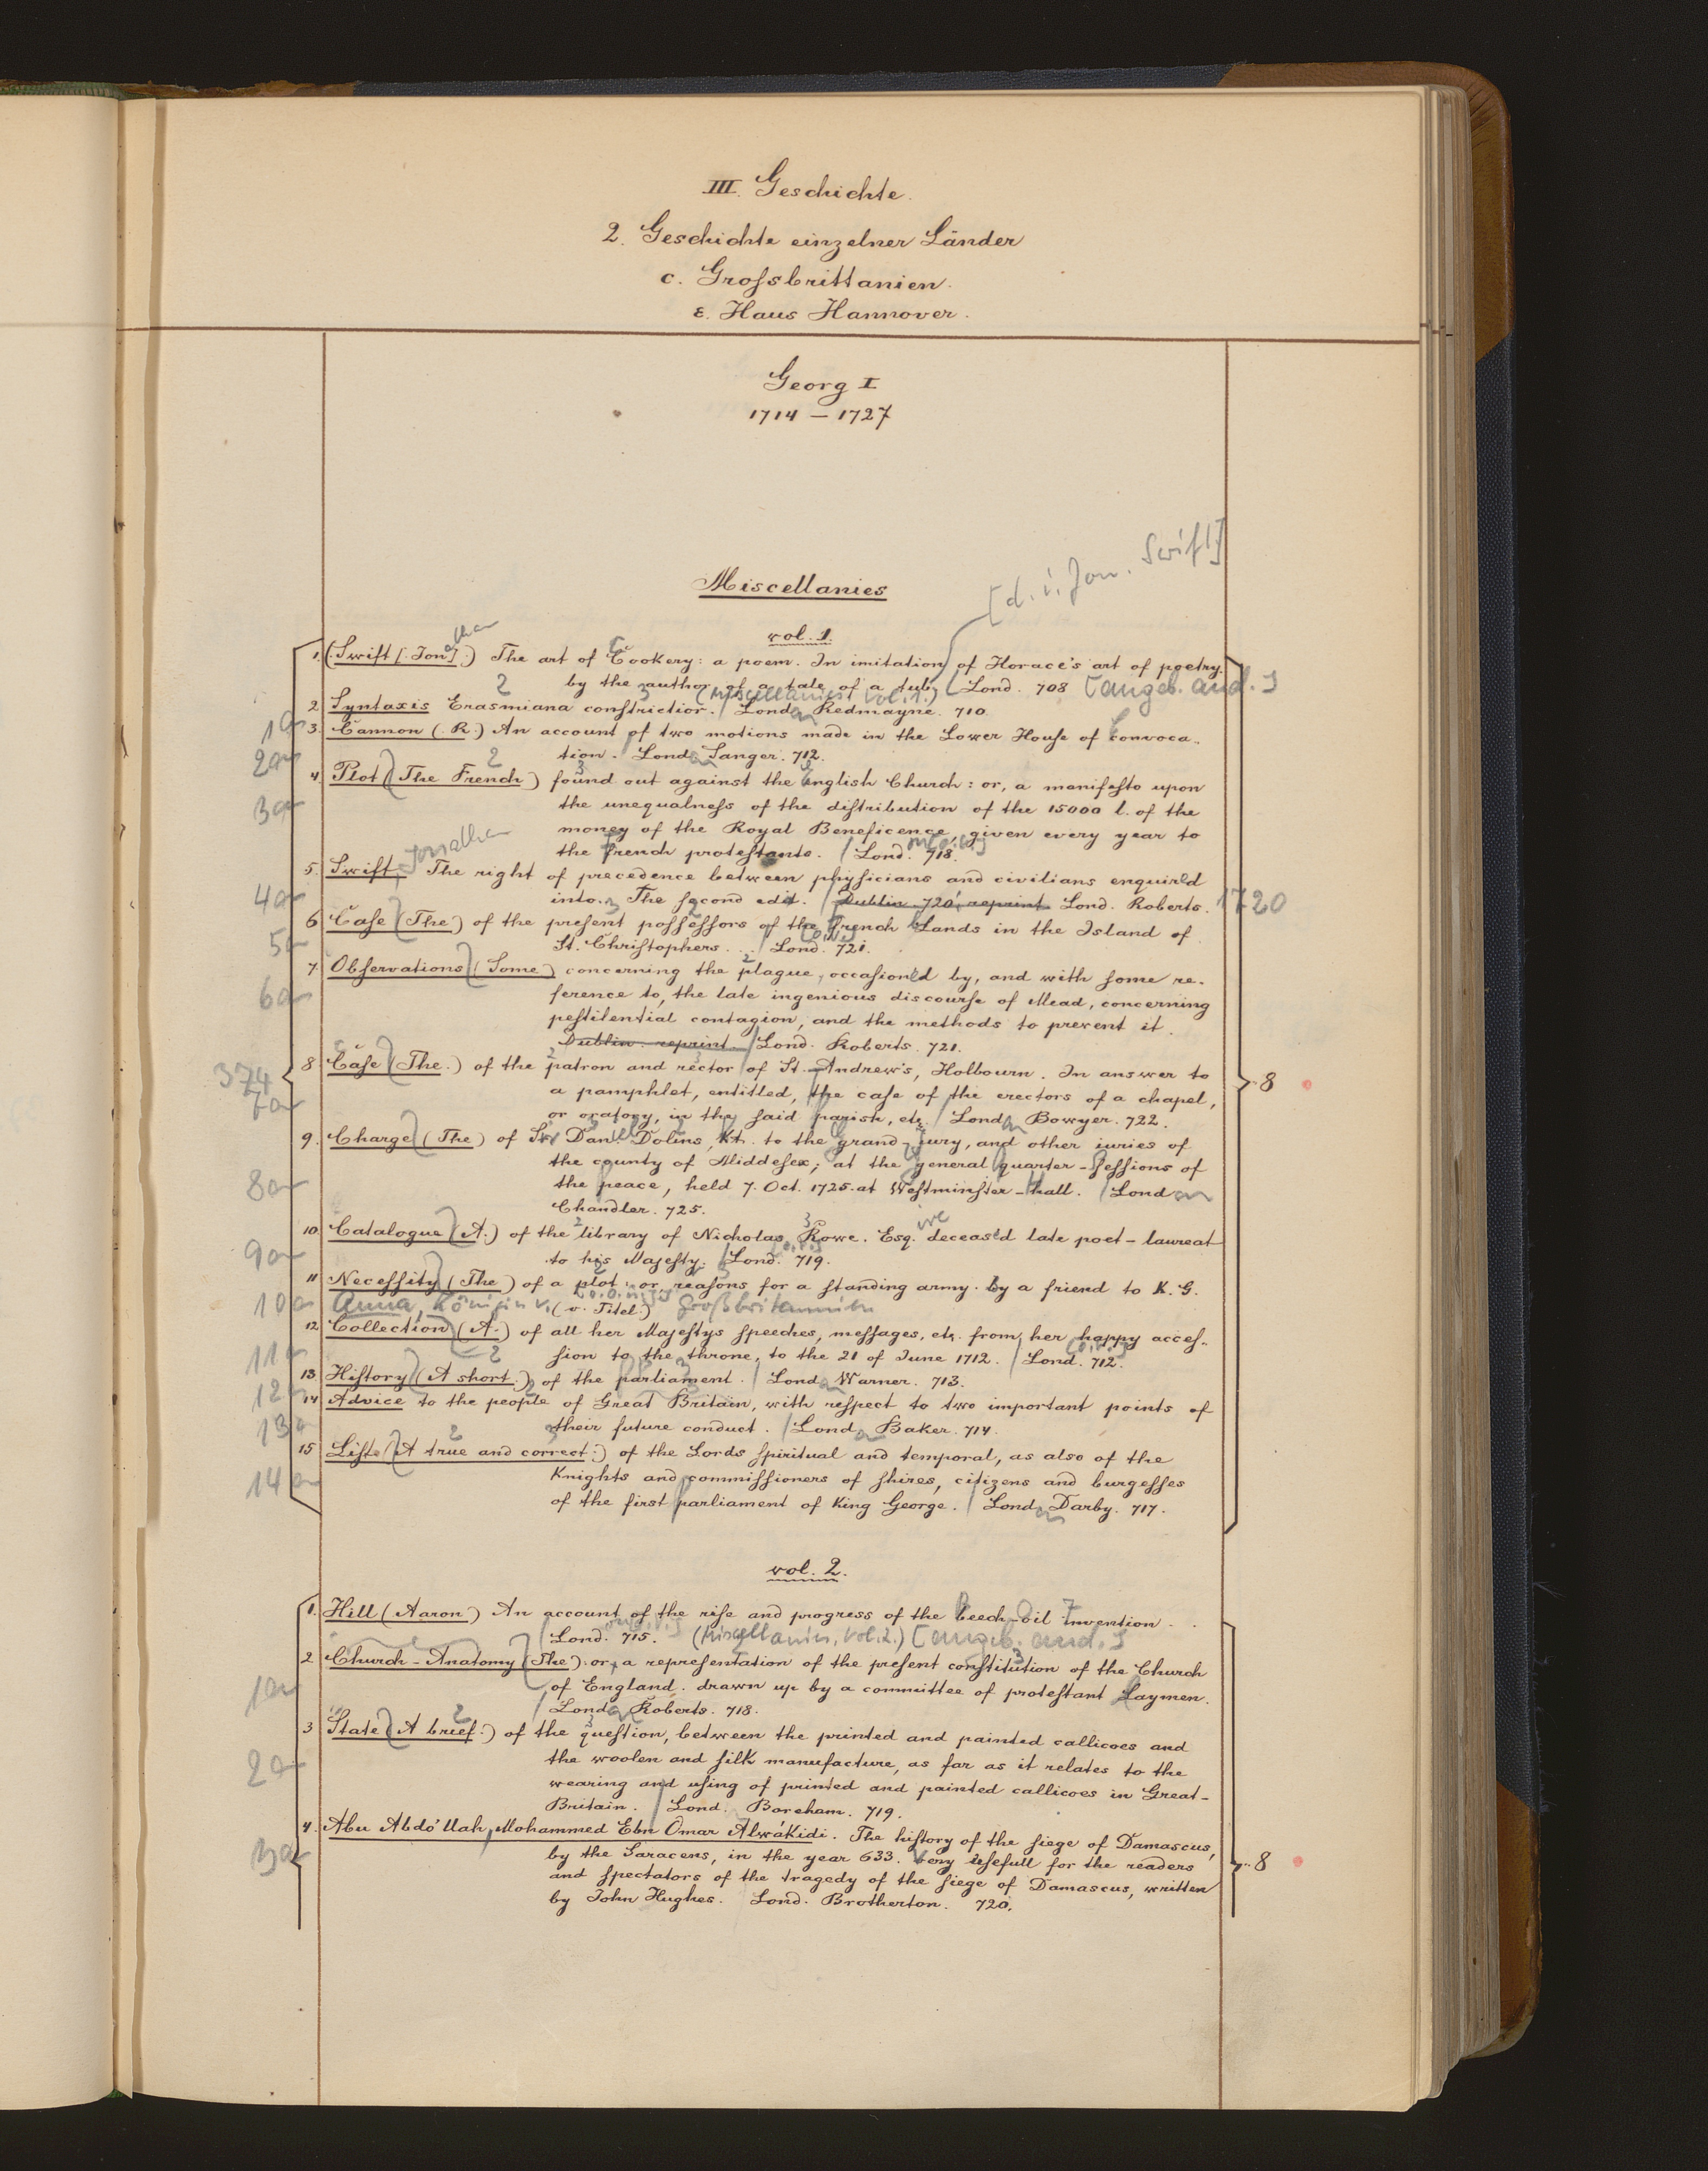 III. Geschichte.
2. Geschichte einzelner Länder
c. Grossbrittanien.
ε. Haus Hannover.
Georg I
1714 – 1727
[d. i. Jon. Swift]
Miscellanies
vol. 1.
1. (Swift [. Jon]athan.) The art of Cookery: a poem. In imitation of Horace's art of poetry.
by the author of a tale of a tub. Lond. 708 [angeb. and.]
(Miscellanies Vol. 1.)
2 Syntaxis Erasmiana constrictior. Londn Redmayne. 710.
1a 3. Cannon (. R.) An account of two motions made in the Lower House of Convoca-
tion. Londn Sanger. 712.
2a 4. Plot (The French) found out against the English Church: or, a manifesto upon
3a the unequalness of the distribution of the 15000 l. of the
money of the Royal Beneficence, given every year to
the french protestants. Lond. 718.
5. Swift, Jonathan The right of precedence between physicians and civilians enquired
4a into. The second edit. Dublin. 720, reprint. Lond. Roberts. 1720
6 Case (The) of the present possessors of the french Lands in the Island of
5a St. Christophers . . . Lond. 721.
7. Observations (Some) concerning the plague, occasion'd by, and with some re-
6a ference to, the late ingenious discourse of Mead, concerning
pestilential contagion, and the methods to prevent it.
Dublin. reprint. Lond. Roberts. 721.
8 Case (The.) of the patron and rector of St. Andrew's, Holbourn. In answer to
374 8
7a a pamphlet, entitled, the case of the erectors of a chapel,
or oratory, in the said parish, etc. Londn Bowyer. 722.
9. Charge (The) of Sir Dan. Dolins, Kt. to the grand-jury, and other iuries of
the county of Middesex; at the general quarter-sessions of
8a the peace, held 7. Oct. 1725. at Westminster-hall. Londn
Chandler. 725.
10. Catalogue (A.) of the library of Nicholas Rowe. Esq. deceas'd late poet-laureat
9a to his Majesty. Lond. 719.
11 Necessity (The) of a plot: or, reasons for a standing army. by a friend to K. G.
10a Anna, Königin v. (v. Titel.) Großbritannien
12 Collection (A.) of all her Majestys speeches, messages, etc. from her happy acces-
11a sion to the throne, to the 21 of June 1712. Lond. 712.
13 History (A short.) of the parliament. Londn Warner. 713.
12a 14 Advice to the people of Great Britain, with respect to two important points of
13a their future conduct. Londn Baker. 714.
15 Liste (A true and correct.) of the Lords spiritual and temporal, as also of the
14a Knights and commissioners of shires, citizens and burgesses
of the first parliament of King George. Londn Darby. 717.
vol. 2.
1. Hill (Aaron) An account of the rise and progress of the beech-oil invention.
Lond. 715. (Miscellanies, Vol. 2.) [angeb. and.]
2 Church-Anatomy (The): or, a representation of the present constitution of the Church
1a of England. drawn up by a committee of protestant Laymen.
Londn Roberts. 718.
3 State (A brief.) of the question, between the printed and painted callicoes and
2a the woolen and silk manufacture, as far as it relates to the
wearing and using of printed and painted callicoes in Great-
Britain. Lond. Boreham. 719.
4. Abu Abdo'llah, Mohammed Ebn Omar Alwákidi. The history of the siege of Damascus,
3a by the Saracens, in the year 633. Very usefull for the readers 8
and spectators of the tragedy of the siege of Damascus, written
by John Hughes. Lond. Brotherton. 720.